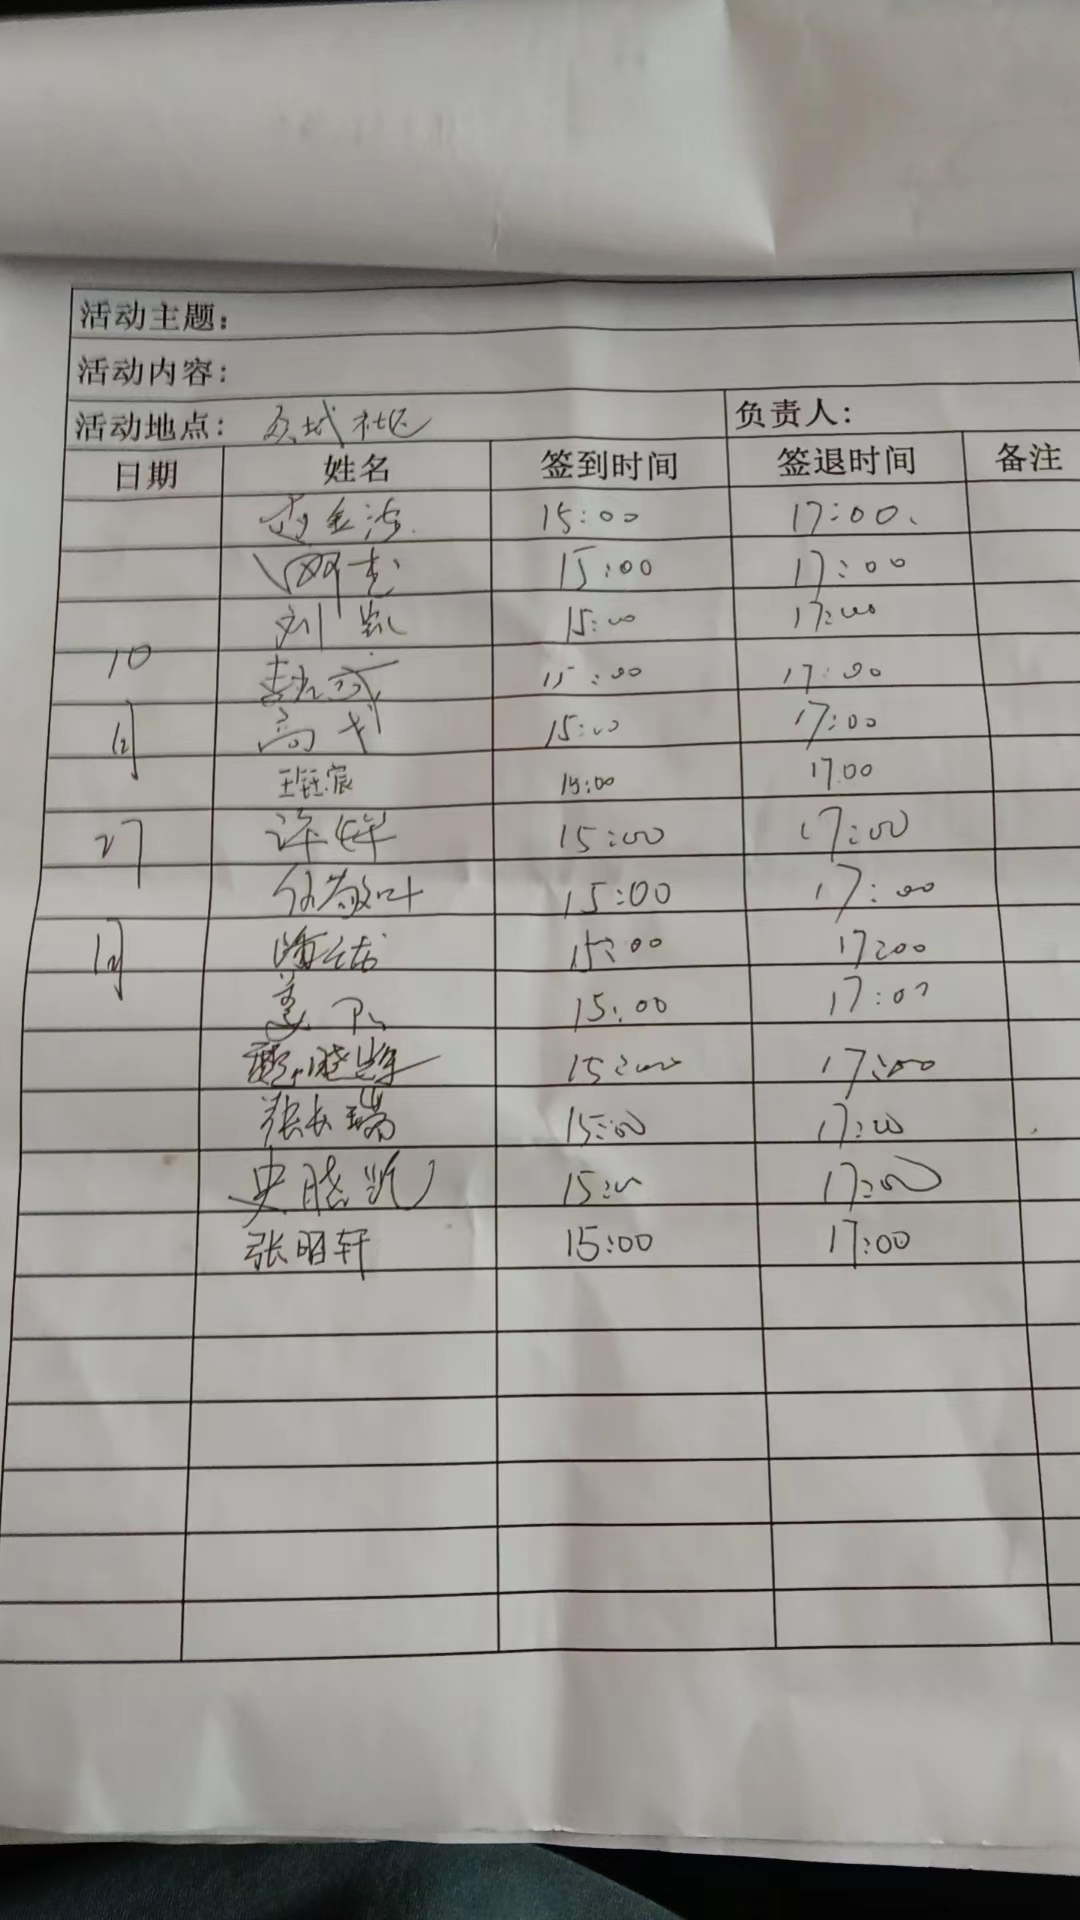 活动主题：
活动内容：
活动地点： 社区 负责人：
日期 姓名 签到时间 签退时间 备注
15:00 17:00
15:00 17:00
刘凯 15:00 17:00
10 15:00 17:00
月 高 15:00 17:00
王钰宸 15:00 17.00
27 许烨 15:00 17:00
15:00 17:00
日 15:00 17:00
姜 15:00 17:00
15:00 17:00
张长瑞 15:00 17:00
史晓凯 15:00 17:00
张明轩 15:00 17:00